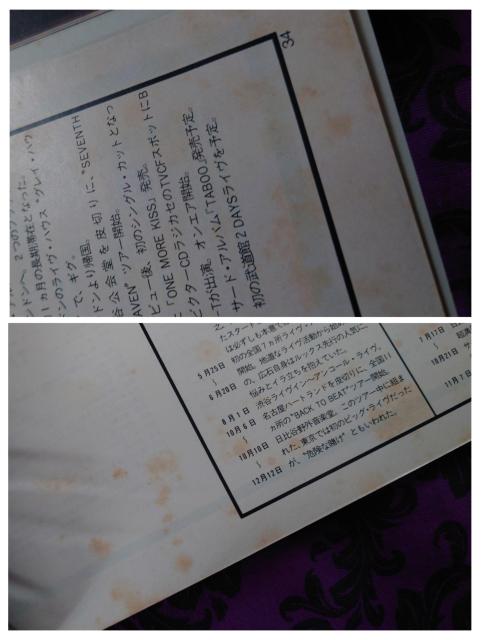 ンドンへ。2つの
1ヵ月の長期滞在となった。
ンのライヴ・ハウス“グレイ・ハウ
で、ギグ。
ドンより帰国。
谷公会堂を皮切りに、“SEVENTH
AVEN”ツアー開始。
ビュー後、初のシングル・カットとなっ
「ONE MORE KISS」発売。
ビクターCDラジカセのTVCFスポットにB
-Tが出演。オンエア開始。
サード・アルバム「TABOO」発売予定。
初の武道館2 DAYSライヴを予定。
34
たスター
は必ずしも本意で
初の全国7ヵ所ライヴ・
5月25日 開始。地道なライヴ活動から始め
〜 の、広石自身はルックス先行の人気に
6月20日 悩みとイラ立ちを抱えていた。
8月1日 渋谷ライヴイン〜アンコール・ライヴ。
10月6日 名古屋ハートランドを皮切りに、全国11
〜 ヵ所の“BACK TO BEAT”ツアー開始。
10月10日 日比谷野外音楽堂。このツアー中に組ま
〜 れた、東京では初のビッグ・ライヴだった
12月12日 が、“危険な賭け”ともいわれた。
7月17日
〜
10月21日
11月7日